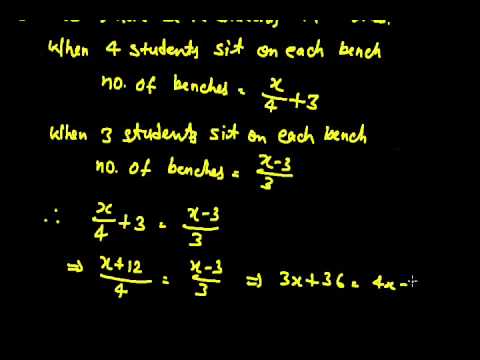 When 4 students sit on each bench
no. of benches = x/4 + 3
When 3 students sit on each bench
no. of benches = x-3/3
∴ x/4 + 3 = x-3/3
⇒ x+12/4 = x-3/3 ⇒ 3x+36 = 4x-